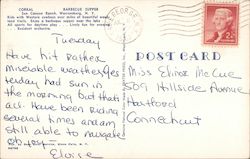 CORRAL BARBECUE SUPPER
Sun Canyon Ranch, Warrensburg, N. Y.
Ride with Western cowboys over miles of beautiful wood-
land trails. Enjoy a barbecue supper near the lake
All sports for daytime play - Lively tips for evening
Resident orchestra.
GEORGE
2¢
Tuesday
Have hit rather
miserable weather. Yes
terday had sun in
the morning but thats
all. Have been riding
several times and am
still able to navigate
Eloise
POST CARD
Miss Elinor McCue
509 Hillside Avenue
Hartford
Connecticut